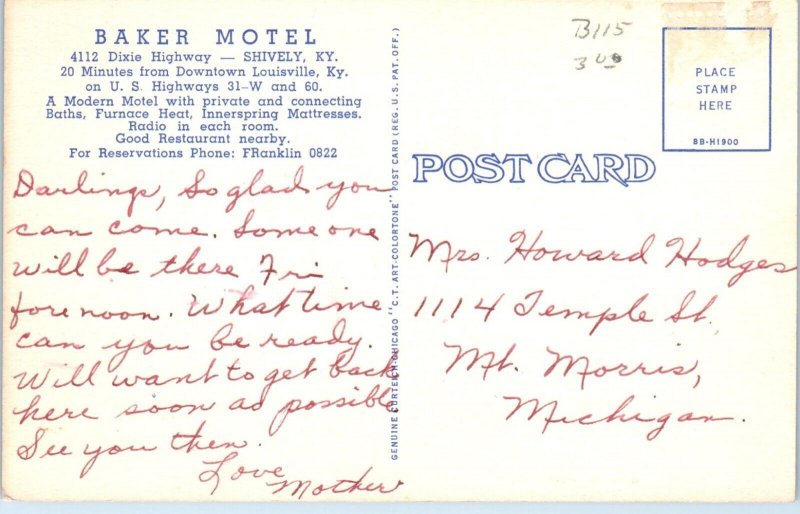 BAKER MOTEL
4112 Dixie Highway — SHIVELY, KY.
20 Minutes from Downtown Louisville, Ky.
on U. S. Highways 31-W and 60.
A Modern Motel with private and connecting
Baths, Furnace Heat, Innerspring Mattresses.
Radio in each room.
Good Restaurant nearby.
For Reservations Phone: FRanklin 0822
Darlings, So glad you
can come. Some one
will be there Fri
fore noon. What time
can you be ready.
Will want to get back
here soon as possible
See you then.
Love
Mother
GENUINE CURTEICH-CHICAGO "C. T. ART-COLORTONE" POST CARD (REG. U. S. PAT. OFF.)
B115
3 00
PLACE
STAMP
HERE
8B-H1900
POST CARD
Mrs. Howard Hodges
1114 Temple St.
Mt. Morris,
Michigan.